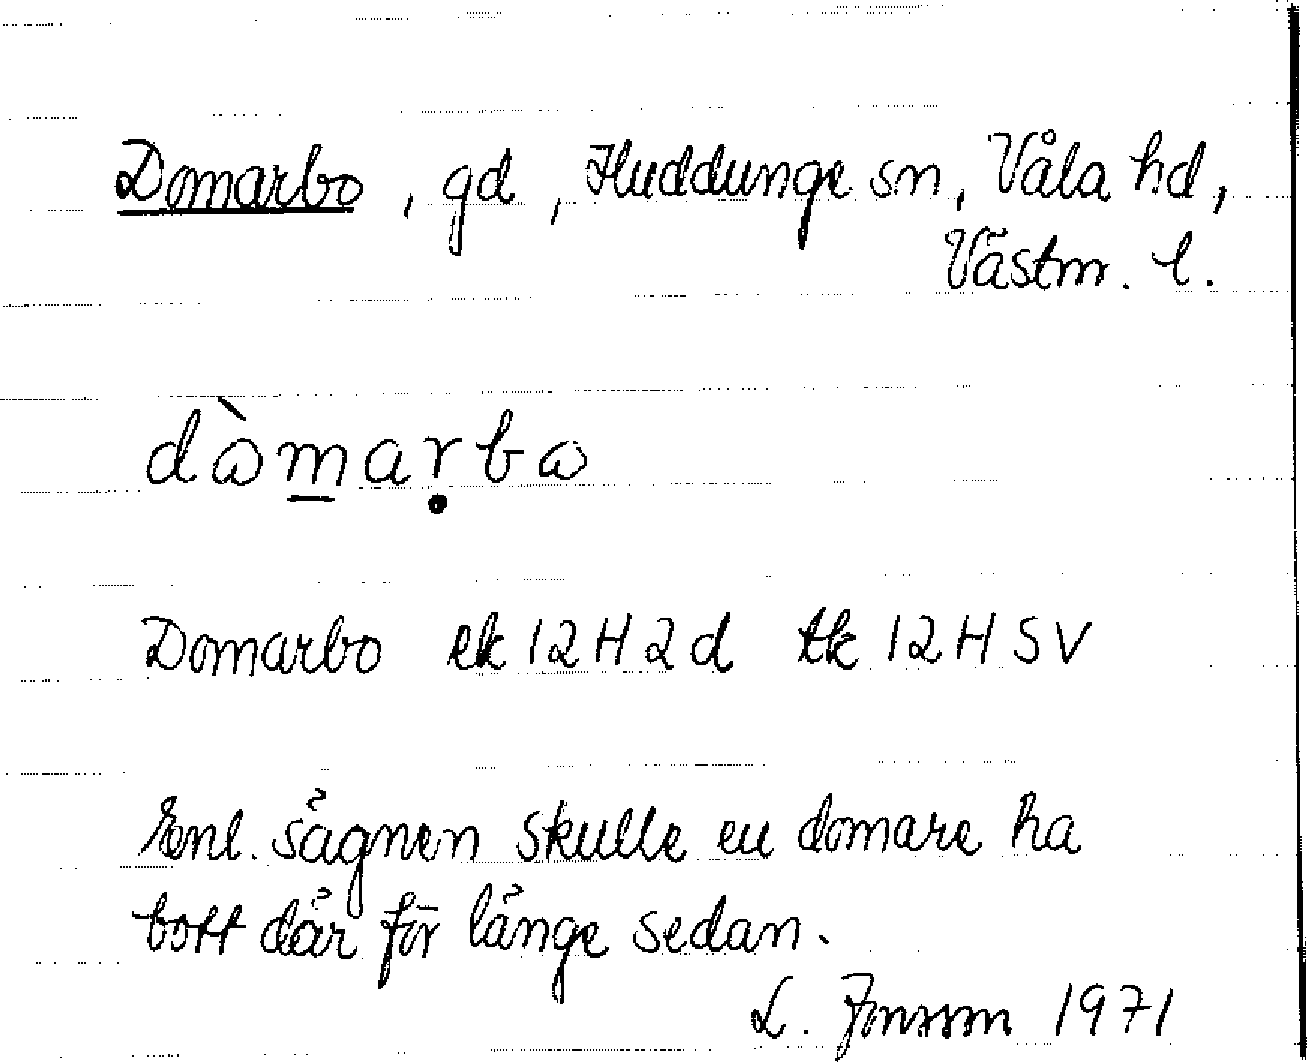 Domarbo, gd, Huddunge sn, Våla hd,
Västm. l.
dòmarbo
Domarbo ek 12H2d tk 12HSV
Enl. sägnen skulle en domare ha
bott där för länge sedan.
L. Jonsson 1971